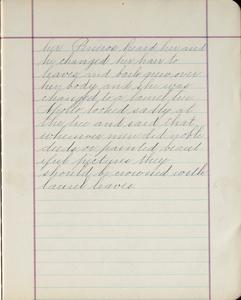 her. Peneos heard her and
he changed her hair to
leaves and bark grew over
her body and she was
changed to a laurel tree
Apollo looked sadly at
the tree and said that
whenever men did noble
deeds or painted beaut
iful pictures they
should be crowned with
laurel leaves.